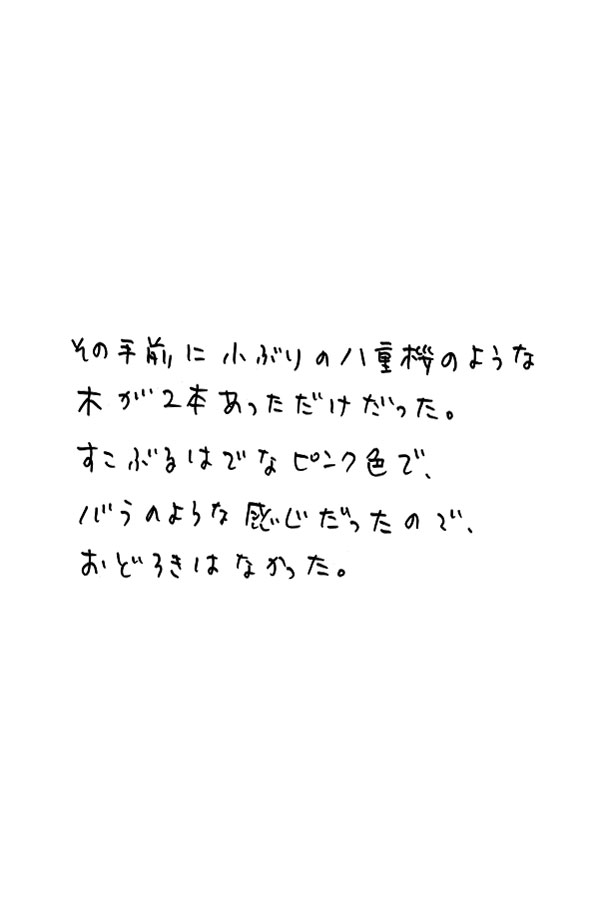 その手前に小ぶりの八重桜のような
木が2本あっただけだった。
すこぶるはでなピンク色で、
バラのような感じだったので、
おどろきはなかった。